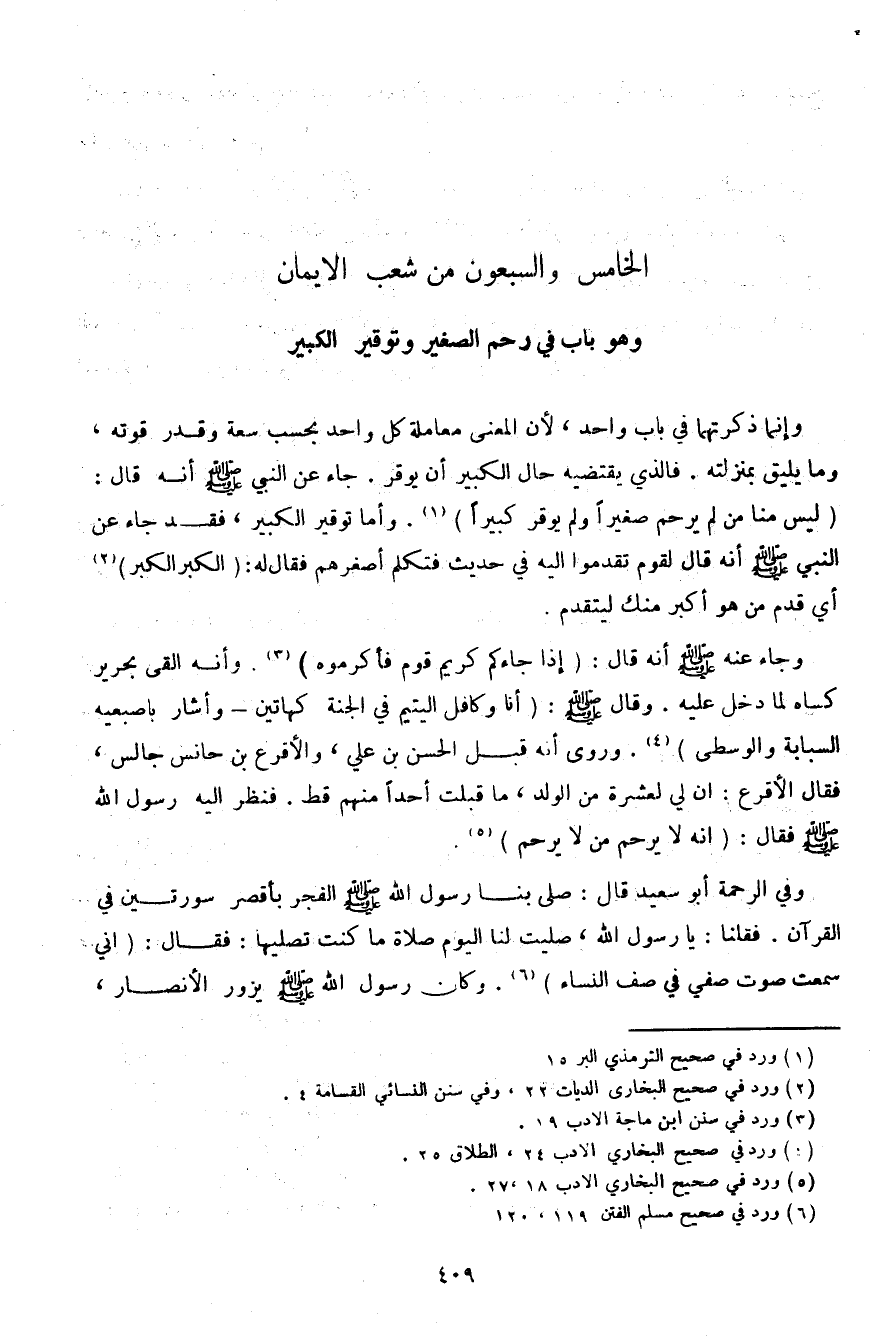 الخامس والسبعون من شعب الايمان
وهو باب في رحم الصغير وتوقير الكبير
وإنما ذكرتها في باب واحد ، لأن المعنى معاملة كل واحد بحسب سعة وقدر قوته ،
وما يليق بمنزلته . فالذي يقتضيه حال الكبير أن يوقر . جاء عن النبي ﷺ أنه قال :
( ليس منا من لم يرحم صغيراً ولم يوقر كبيراً ) (١) . وأما توقير الكبير ، فقد جاء عن
النبي ﷺ أنه قال لقوم تقدموا اليه في حديث فتكلم أصغرهم فقال له: ( الكبر الكبر ) (٢)
أي قدم من هو أكبر منك ليتقدم .
وجاء عنه ﷺ أنه قال : ( إذا جاءكم كريم قوم فأكرموه ) (٣) . وأنه القى بجرير
كساه لما دخل عليه . وقال ﷺ : ( أنا وكافل اليتيم في الجنة كهاتين – وأشار باصبعيه
السبابة والوسطى ) (٤) . وروى أنه قبل الحسن بن علي ، والأقرع بن حانس جالس ،
فقال الأقرع : ان لي لعشرة من الولد ، ما قبلت أحداً منهم قط . فنظر اليه رسول الله
ﷺ فقال : ( انه لا يرحم من لا يرحم ) (٥) .
وفي الرحمة أبو سعيد قال : صلى بنا رسول الله ﷺ الفجر بأقصر سورتين في
القرآن . فقلنا : يا رسول الله ، صليت لنا اليوم صلاة ما كنت تصليها : فقال : ( اني
سمعت صوت صفي في صف النساء ) (٦) . وكان رسول الله ﷺ يزور الأنصار ،
(١) ورد في صحيح الترمذي البر ١٥
(٢) ورد في صحيح البخارى الديات ٢٣ ، وفي سنن النسائي القسامة ٤ .
(٣) ورد في سنن ابن ماجة الادب ١٩ .
(:) ورد في صحيح البخاري الادب ٢٤ ، الطلاق ٢٥ .
(٥) ورد في صحيح البخاري الادب ١٨ ،٢٧ .
(٦) ورد في صحيح مسلم الفتن ١١٩ ، ١٢٠
٤٠٩